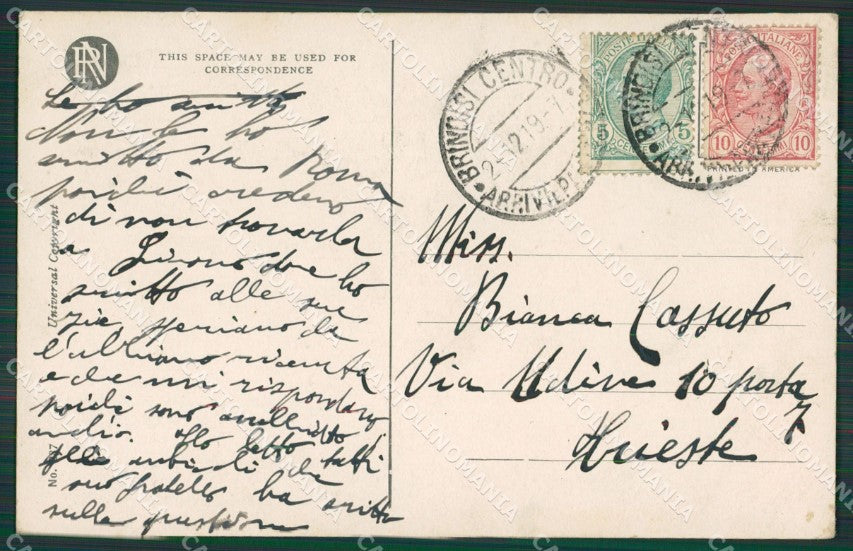 THIS SPACE MAY BE USED FOR
CORRESPONDENCE
Le ho scritto
Non le ho
scritto da Roma
poichè credevo
di non trovarla
a dove ho
scritto alle sue
zie, speriamo che
l'abbiano ricevuta
e che mi rispondano
poichè sono
anch'io. Ho letto tutti
gli articoli che
suo fratello ha scritto
sulla questione
Universal Copyright
No.
BRINDISI CENTRO
2-12 19-7
ARRIVI E P
POSTE ITALIANE
5 CENTESIMI 5
BRINDISI CENTRO
POSTE ITALIANE
10 CENTESIMI 10
Miss.
Bianca Cassuto
Via Udine 10 porta
7
Trieste
CARTOLINOMANIA